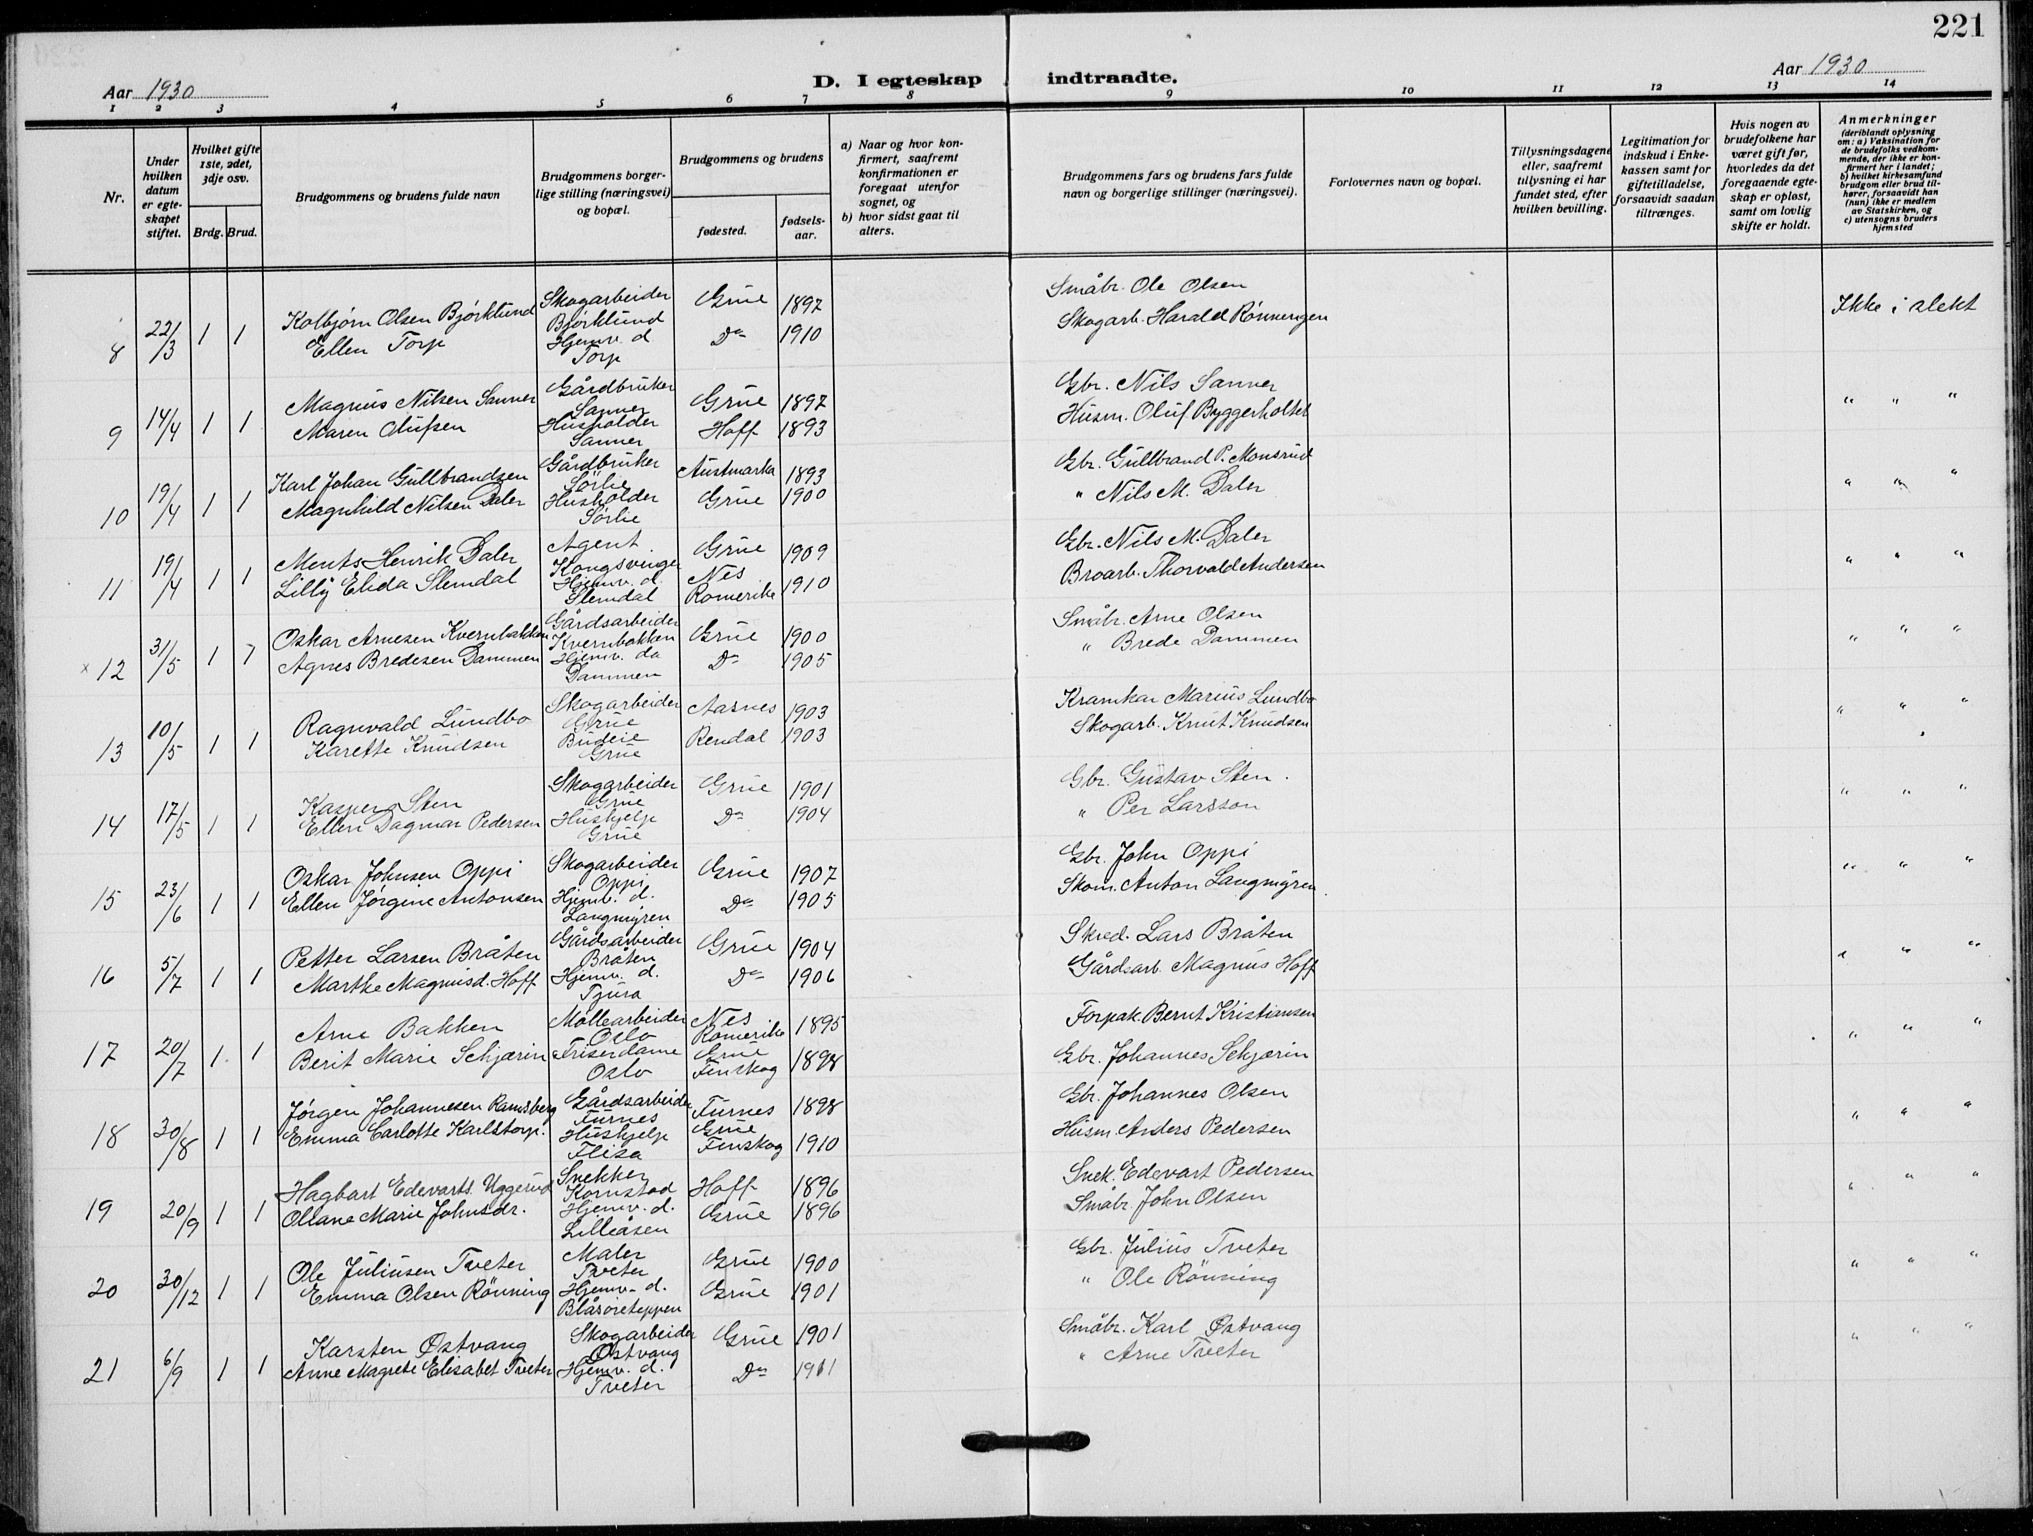 221
Aar 1930
D. I egteskap indtraadte.
Aar 1930
1 2 3 4 5 6 7 8 9 10 11 12 13 14
Nr.
Under hvilken datum er egteskapet stiftet.
Hvilket gifte 1ste, 2det, 3dje osv.
Brdg. Brud.
Brudgommens og brudens fulde navn
Brudgommens borgerlige stilling (næringsvei) og bopæl.
Brudgommens og brudens
fødested.
fødselsaar.
a) Naar og hvor konfirmert, saafremt konfirmationen er foregaat utenfor sognet, og
b) hvor sidst gaat til alters.
Brudgommens fars og brudens fars fulde navn og borgerlige stillinger (næringsvei).
Forlovernes navn og bopæl.
Tillysningsdagene eller, saafremt tillysning ei har fundet sted, efter hvilken bevilling.
Legitimation for indskud i Enkekassen samt for giftetilladelse, forsaavidt saadan tiltrænges.
Hvis nogen av brudefolkene har været gift før, hvorledes da det foregaaende egteskap er opløst, samt om lovlig skifte er holdt.
Anmerkninger
(deriblandt oplysning om: a) Vaksination for de brudefolks vedkommende, der ikke er konfirmert her i landet; b) hvilket kirkesamfund brudgom eller brud tilhører, forsaavidt han (hun) ikke er medlem av Statskirken, og c) utensogns bruders hjemsted
8 22/3 1 1 Kolbjørn Olsen Bjørklund Skogarbeider Bjørklund Grue 1897 Småbr. Ole Olsen Ikke i slekt
Ellen Torp Hjemv. d Torp Do 1910 Skogarb. Harald Rønnengen
9 14/4 1 1 Magnus Nilsen Sanner Gårdbruker Sanner Grue 1897 Gbr. Nils Sanner " " "
Maren Olufsen Husholder Sanner Hoff 1893 Husm. Oluf Byggerholtet
10 19/4 1 1 Karl Johan Gullbrandsen Gårdbruker Sørlie Austmarka 1893 Gbr. Gullbrand P. Monsrud " " "
Magnhild Nilsen Daler Husholder Sørlie Grue 1900 " Nils M. Daler
11 19/4 1 1 Ments Henrik Daler Agent Kongsvinger Grue 1909 Gbr. Nils M. Daler " " "
Lilly Elida Slemdal Hjemv. d. Slemdal Nes Romerike 1910 Broarb. Thorvald Andersen
x 12 31/5 1 1 Oskar Arnesen Kvernbakken Gårdsarbeider Kvernbakken Grue 1900 Småbr. Arne Olsen " " "
Agnes Bredesen Dammen Hjemv. da Dammen Do 1905 " Brede Dammen
13 10/5 1 1 Ragnvald Lundbo Skogarbeider Grue Aasnes 1903 Kramkar Marius Lundbo " " "
Karette Knudsen Budeie Grue Rendal 1903 Skogarb. Knut Knudsen
14 17/5 1 1 Kasper Sten Skogarbeider Grue Grue 1901 Gbr. Gustav Sten. " " "
Ellen Dagmar Pedersen Hushjelp Grue Do 1904 " Per Larsson
15 23/6 1 1 Oskar Johnsen Oppi Skogarbeider Oppi Grue 1907 Gbr. John Oppi " " "
Ellen Jørgine Antonsen Hjemv. d. Langmyren Do 1905 Skom. Anton Langmyren
16 5/7 1 1 Petter Larsen Bråten Gårdsarbeider Bråten Grue 1904 Skred. Lars Bråten " " "
Marthe Magnusd. Hoff Hjemv. d. Tjura Do 1906 Gårdsarb. Magnus Hoff
17 20/7 1 1 Arne Bakken Møllearbeider Oslo Nes Romerike 1895 Forpak. Bernt Kristiansen " " "
Berit Marie Schjærin Friserdame Oslo Grue Finskog 1898 Gbr. Johannes Schjærin
18 30/8 1 1 Jørgen Johannesen Ramsberg Gårdsarbeider Furnes Furnes 1898 Gbr. Johannes Olsen " " "
Emma Carlotte Karlstorp. Hushjelp Flisa Grue Finskog 1910 Husm. Anders Pedersen
19 20/9 1 1 Hagbart Edevarts. Uggerud Snekker Kornstad Hoff 1896 Snek. Edevart Pedersen " " "
Oliane Marie Johnsdr. Hjemv. d. Lilleåsen Grue 1896 Småbr. John Olsen
20 30/12 1 1 Ole Juliusen Tveter Maler Tveter Grue 1900 Gbr. Julius Tveter " " "
Emma Olsen Rønning Hjemv. d. Grue 1901 " Ole Rønning
21 6/9 1 1 Karsten Østvang Skogarbeider Østvang Grue 1901 Småbr. Karl Østvang " " "
Anne Magrete Elisabet Tveter Hjemv. d. Tveter Do " Arne Tveter